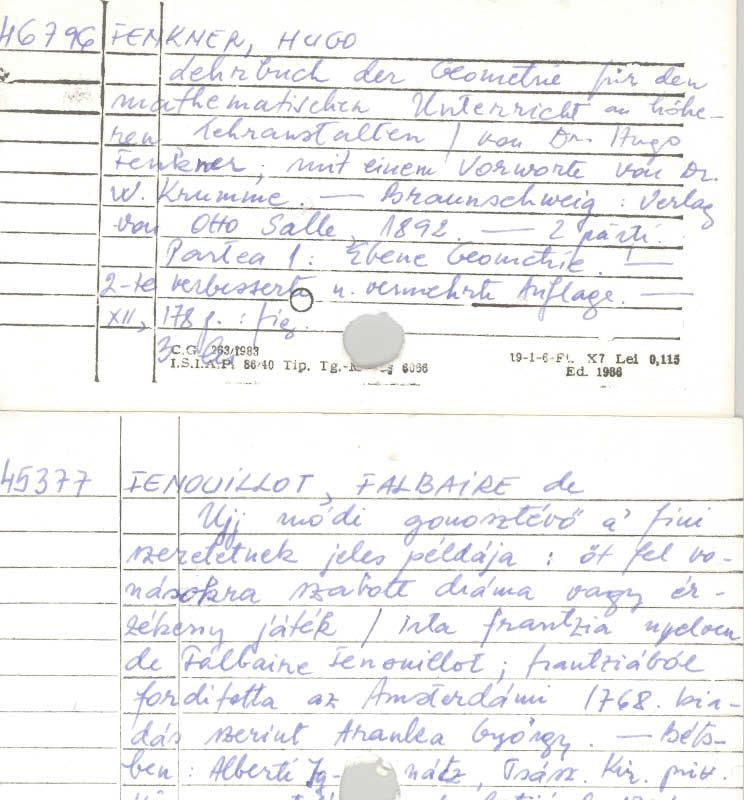 46796 FENKNER, HUGO
Lehrbuch der Geometrie für den
mathematischen Unterricht an höhe-
ren Lehranstalten / von Dr. Hugo
Fenkner; mit einem Vorworte von Dr.
W. Krumme. — Braunschweig : Verlag
von Otto Salle, 1892. — 2 părți.
Partea 1: Ebene Geometrie. —
2-te verbesserte u. vermehrte Auflage. —
XII, 178 p. : fig.
3 lei
C.G. 263/1983
I.S.I.A.P. 86/40 Tip. Tg.- 6066
19-1-6-Ft. X7 Lei 0,115
Ed. 1986
45377 FENOUILLOT, FALBAIRE de
Ujj módi gonosztévő a' fiui
szeretetnek jeles példája : öt fel vo-
násokra szabott dráma vagy ér-
zékeny játék / irta frantzia nyelven
de Falbaire Fenouillot; frantziából
fordította az Amsterdámi 1768. kia-
dás szerint Aranka György. — Béts-
ben : Alberti Ig- nátz, Tsász. Kir. priv.